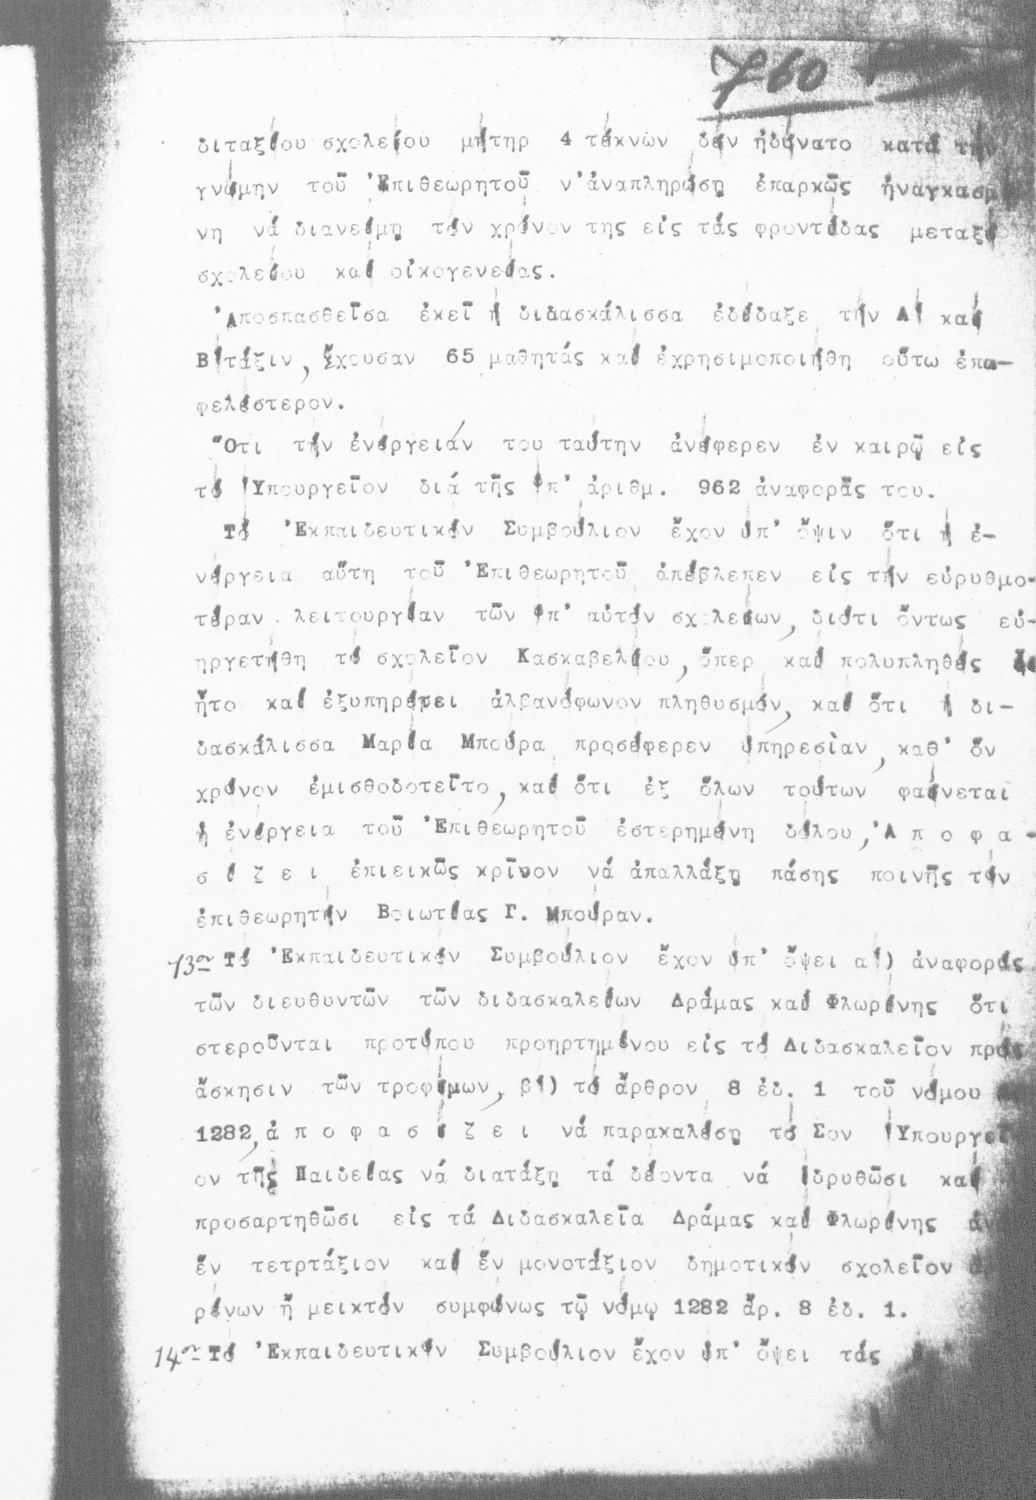 760
διταξίου σχολείου μήτηρ 4 τέκνων δέν ἠδύνατο κατά τήν
γνώμην τοῦ Ἐπιθεωρητοῦ ν' ἀναπληρώσῃ ἐπαρκῶς ἠναγκασμ
νη νά διανείμῃ τόν χρόνον της εἰς τάς φροντίδας μεταξύ
σχολείου καί οἰκογενείας.
Ἀποσπασθεῖσα ἐκεῖ ἡ διδασκάλισσα ἐδίδαξε τήν Α' καί
Β' τάξιν, ἔχουσαν 65 μαθητάς καί ἐχρησιμοποιήθη οὕτω ἐπω-
φελέστερον.
Ὅτι τήν ἐνέργειάν του ταύτην ἀνέφερεν ἐν καιρῷ εἰς
τό Ὑπουργεῖον διά τῆς ὑπ' ἀριθμ. 962 ἀναφορᾶς του.
Τό Ἐκπαιδευτικόν Συμβούλιον ἔχον ὑπ' ὄψιν ὅτι ἡ ἐ-
νέργεια αὕτη τοῦ Ἐπιθεωρητοῦ ἀπέβλεπεν εἰς τήν εὐρυθμο-
τέραν λειτουργίαν τῶν ὑπ' αὐτόν σχολείων, διότι ὄντως εὐ-
ηργετήθη τό σχολεῖον Κασκαβελίου, ὅπερ καί πολυπληθές
ἦτο καί ἐξυπηρέτει ἀλβανόφωνον πληθυσμόν, καί ὅτι ἡ δι-
δασκάλισσα Μαρία Μπούρα προσέφερεν ὑπηρεσίαν, καθ' ὅν
χρόνον ἐμισθοδοτεῖτο, καί ὅτι ἐξ ὅλων τούτων φαίνεται
ἡ ἐνέργεια τοῦ Ἐπιθεωρητοῦ ἐστερημένη δόλου, Ἀ π ο φ α -
σ ί ζ ε ι ἐπιεικῶς κρῖνον νά ἀπαλλάξῃ πάσης ποινῆς τόν
ἐπιθεωρητήν Βοιωτίας Γ. Μπούραν.
13ον Τό Ἐκπαιδευτικόν Συμβούλιον ἔχον ὑπ' ὄψει α') ἀναφοράς
τῶν διευθυντῶν τῶν διδασκαλείων Δράμας καί Φλωρίνης ὅτι
στεροῦνται προτύπου προηρτημένου εἰς τό Διδασκαλεῖον πρός
ἄσκησιν τῶν τροφίμων, β') τό ἄρθρον 8 ἐδ. 1 τοῦ νόμου
1282, ἀ π ο φ α σ ί ζ ε ι νά παρακαλέσῃ τό Σον Ὑπουργεῖ
ον τῆς Παιδείας νά διατάξῃ τά δέοντα νά ἱδρυθῶσι καί
προσαρτηθῶσι εἰς τά Διδασκαλεῖα Δράμας καί Φλωρίνης ἀν
ἕν τετρτάξιον καί ἕν μονοτάξιον δημοτικόν σχολεῖον
ρένων ἤ μεικτόν συμφώνως τῷ νόμῳ 1282 ἄρ. 8 ἐδ. 1.
14ον Τό Ἐκπαιδευτικόν Συμβούλιον ἔχον ὑπ' ὄψει τάς